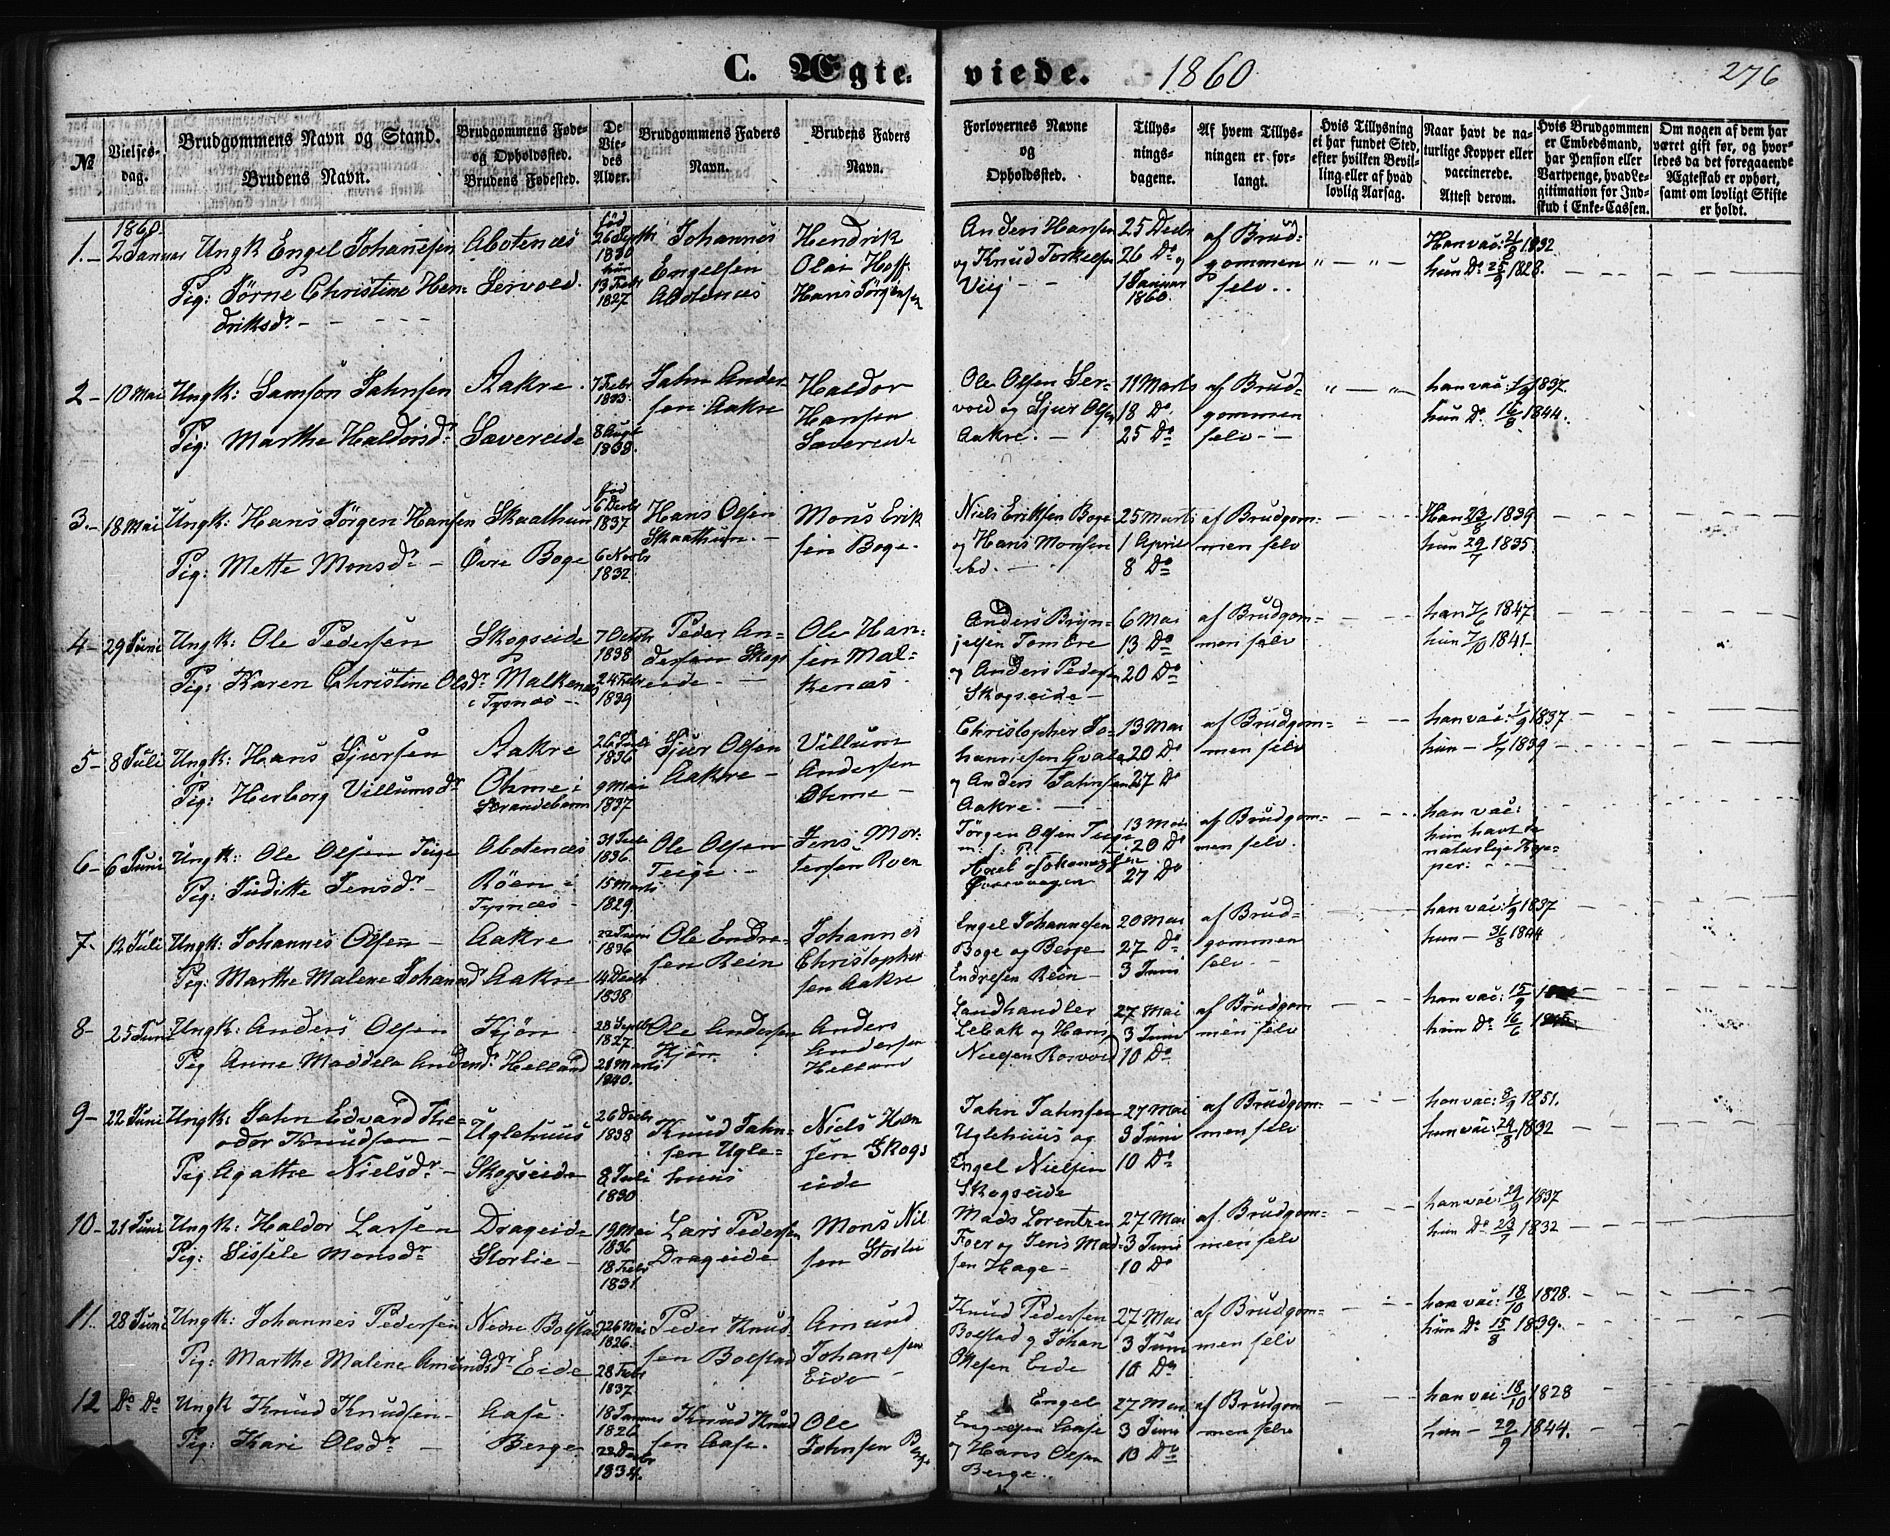 C. Ægte-
viede. 1860
276
№
Vielses-
dag.
Brudgommens Navn og Stand.
Brudens Navn.
Brudgommens Føde-
og Opholdssted.
Brudens Fødested.
De
Vie-
des
Alder.
Brudgommens Faders
Navn.
Brudens Faders
Navn.
Forlovernes Navne
og
Opholdssted.
Tillys-
nings-
dagene.
Af hvem Tillys-
ningen er for-
langt.
Hvis Tillysning
ei har fundet Sted,
efter hvilken Bevil-
ling eller af hvad
lovlig Aarsag.
Naar havt de na-
turlige Kopper eller
vaccinerede.
Attest derom.
Hvis Brudgommen
er Embedsmand,
har Pension eller
Vartpenge, hvad Le-
gitimation for Ind-
skud i Enke-Cassen.
Om nogen af dem har
været gift før, og hvor-
ledes da det foregaaende
Ægteskab er ophørt,
samt om lovligt Skifte
er holdt.
1. 1860. 2 Januar
Ungk Engel Johannesen
Pig: Jørne Christine Hen-
driksdr
Abotenæs
Servold
26 Septb
1830
hun
13 Febr
1827
Johannes
Engelsen
Abotenæs
Hendrik
Olai Hoff
Hans Jørgensen
Anders Hansen
og Knud Torkelsen
25 Decbr
26 Do og
1 Januar
1860.
af Brud-
gommen
selv.
Han vac: 21/8 1832
hun Do 25/9 1828.
2 10 Mai
Ungk: Samson Jahnsen
Pig: Marthe Haldorsdr
Aakre
Sævereide
7 Febr
8 Augt
Jahn Ander-
sen Aakre
Haldor
Hansen
Sævereide
Ole Olsen Ser-
vold og Sjur Olsen
Aakre.
11 Marts
18 Do
25 Do
af Brud-
gommen
selv
han vac: 1/9 1837.
hun Do 16/8 1844.
3. 18 Mai
Ungk: Hans Jørgen Hansen
Pig: Mette Monsdr
Skaathun
Øvre Boge
fød
6 Decbr
1837
6 Novbr
1832.
Hans Olsen
Skaathun.
Mons Erik
sen Boge.
Niels Eriksen Boge
og Hans Monsen
ibd.
25 Marts
1 April
8 Do
af Brudgom-
men selv
Han 23/8 1839
hun 29/7 1835
4 29 Juni
Ungk: Ole Pedersen
Pig: Karen Christine Olsdr
Skogseide
Malkenæs
i Tysnæs
7 Octobr
1838
24 Febr
1839
Peder An-
dersen Skogs
eide
Ole Han-
sen Mal-
kenæs
Anders Bryn-
jelsen Tombre
og Anders Pedersen
Skogseide
6 Mai
13 Do
20 Do
af Brudgom-
men selv
han 7/6 1847
hun 7/10 1841
5 8 Juli
Ungk: Hans Sjursen
Pig: Herborg Villumsdr
Aakre
Ohme i
Strandebarm
26 Juli
1836
9 Mai
1837
Sjur Olsen
Aakre
Villum
Andersen
Ohme
Christopher Jo-
hannesen Gvale
og Anders Jahnsen
Aakre
13 Mai
20 Do
27 Do
af Brudgom-
men selv
han vac: 1/9 1837
hun 1839
6 6 Juni
Ungk: Ole Olsen Teige
Pig: Juditte Jensdr
Abotenæs
Røen i
Tysnæs
1836
15 Marts
1829
Ole Olsen
Teige
Jens Mor-
tensen Roen
Jørgen Olsen Teige
Axel Johannessen
13 Mai
20 Do
27 Do
af Brudgom-
men selv
han vac:
hun havt de
naturlige Kop-
per:
7. 12 Juli
Ungk: Johannes Olsen
Pig: Marthe Malene Johannesdr
Aakre
Aakre
22 Juni
1836
14 Decbr
1838
Ole Endre-
sen Rein
Johannes
Christopher
sen Aakre
Engel Johannesen
Boge og Berge
Endresen Rein
20 Mai
27 Do
3 Juni
af Brud-
gommen
selv
han vac: 1/9 1837
hun 31/8 1844
8 25 Juni
Ungk: Anders Olsen
Pig Anne Maddela Andersdr
Kjøn
Helland
28 Septb
1827
21 Marts
1840.
Ole Andersen
Kjøn
Anders
Andersen
Helland
Landhandler
Lebak og Hans
Nielsen Rosvold
27 Mai
3 Juni
10 Do
af Brudgom
men selv
han vac: 15/9
hun Do 16/6
9 22 Juni
Ungk: Jahn Edvard The-
odor Knudsen
Pig Agathe Nielsdr
Uglehuus
Skogseide
26 Decbr
1838
8 Juli
1830
Knud Jahn-
sen Ugle-
huus
Niels Han
sen Skogs
eide
Jahn Jahnsen
Uglehuus og
Engel Nielsen
Skogseide
27 Mai
3 Juni
10 Do
af Brudgom-
men selv
han vac: 1851.
hun vac: 24/8 1832
10 21 Juni
Ungk: Haldor Larsen
Pig: Sissele Monsdr
Drageide
Storlie
19 Mai
1836
18 Febr
1831.
Lars Pedersen
Drageide
Mons Nil
sen Storlie
Mads Lorentzen
Foer og Jens Mad-
sen Hage
27 Mai
3 Juni
10 Do
af Brudgom-
men selv
han vac: 29/9 1837
hun Do 23/7 1832
11. 28 Juni
Ungk: Johannes Pedersen
Pig: Marthe Malene Amundsdr
Nedre Bolstad
Eide
26 Mai
1826.
28 Febr
1837.
Peder Knud
sen Bolstad
Amund
Johanesen
Eide
Knud Pedersen
Bolstad og Johan
Olesen Eide
27 Mai
3 Juni
10 Do
af Brudgom-
men selv
han vac: 18/10 1828.
hun Do 15/8 1839.
12 Do Do
Ungk Knud Knudsen
Pig: Kari Olsdr
Aase
Berge
18 Januar
1826
22 Decbr
1834.
Knud Knud
sen Aase.
Ole
Johnsen Berge
Engel
Engelsen Aase
og Hans Olsen
Berge.
27 Mai
3 Juni
10 Do
af Brudgom
men selv
han vac: 18/10 1828
hun 29/9 1844.